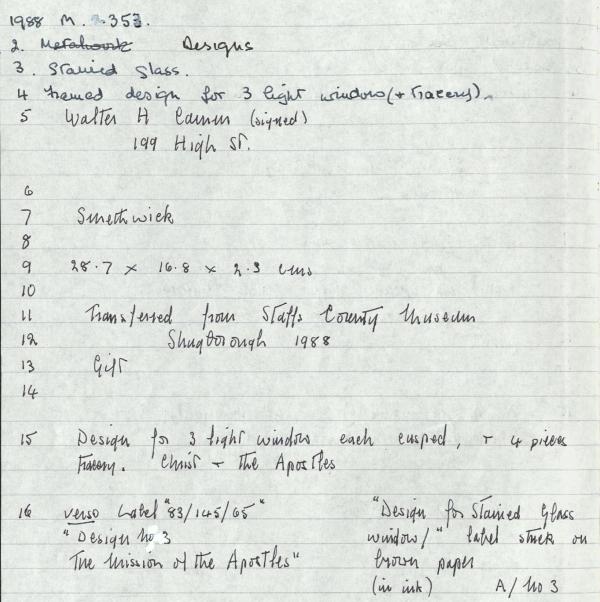 1988 M. 353.
2. Metalwork Designs
3. Stained Glass.
4 Framed design for 3 light window (+ Tracery).
5 Walter H Camm (signed)
199 High St.
6
7 Smethwick
8
9 28.7 × 16.8 × 2.3 cms
10
11 Transferred from Staffs County Museum
12 Shugborough 1988
13 Gift
14
15 Design for 3 light window each cusped, + 4 pieces
Tracery. Christ + the Apostles
16 verso Label "83/145/65"
"Design No 3
The Mission of the Apostles"
"Design for Stained Glass
window/" label stuck on
brown paper
(in ink) A/No 3